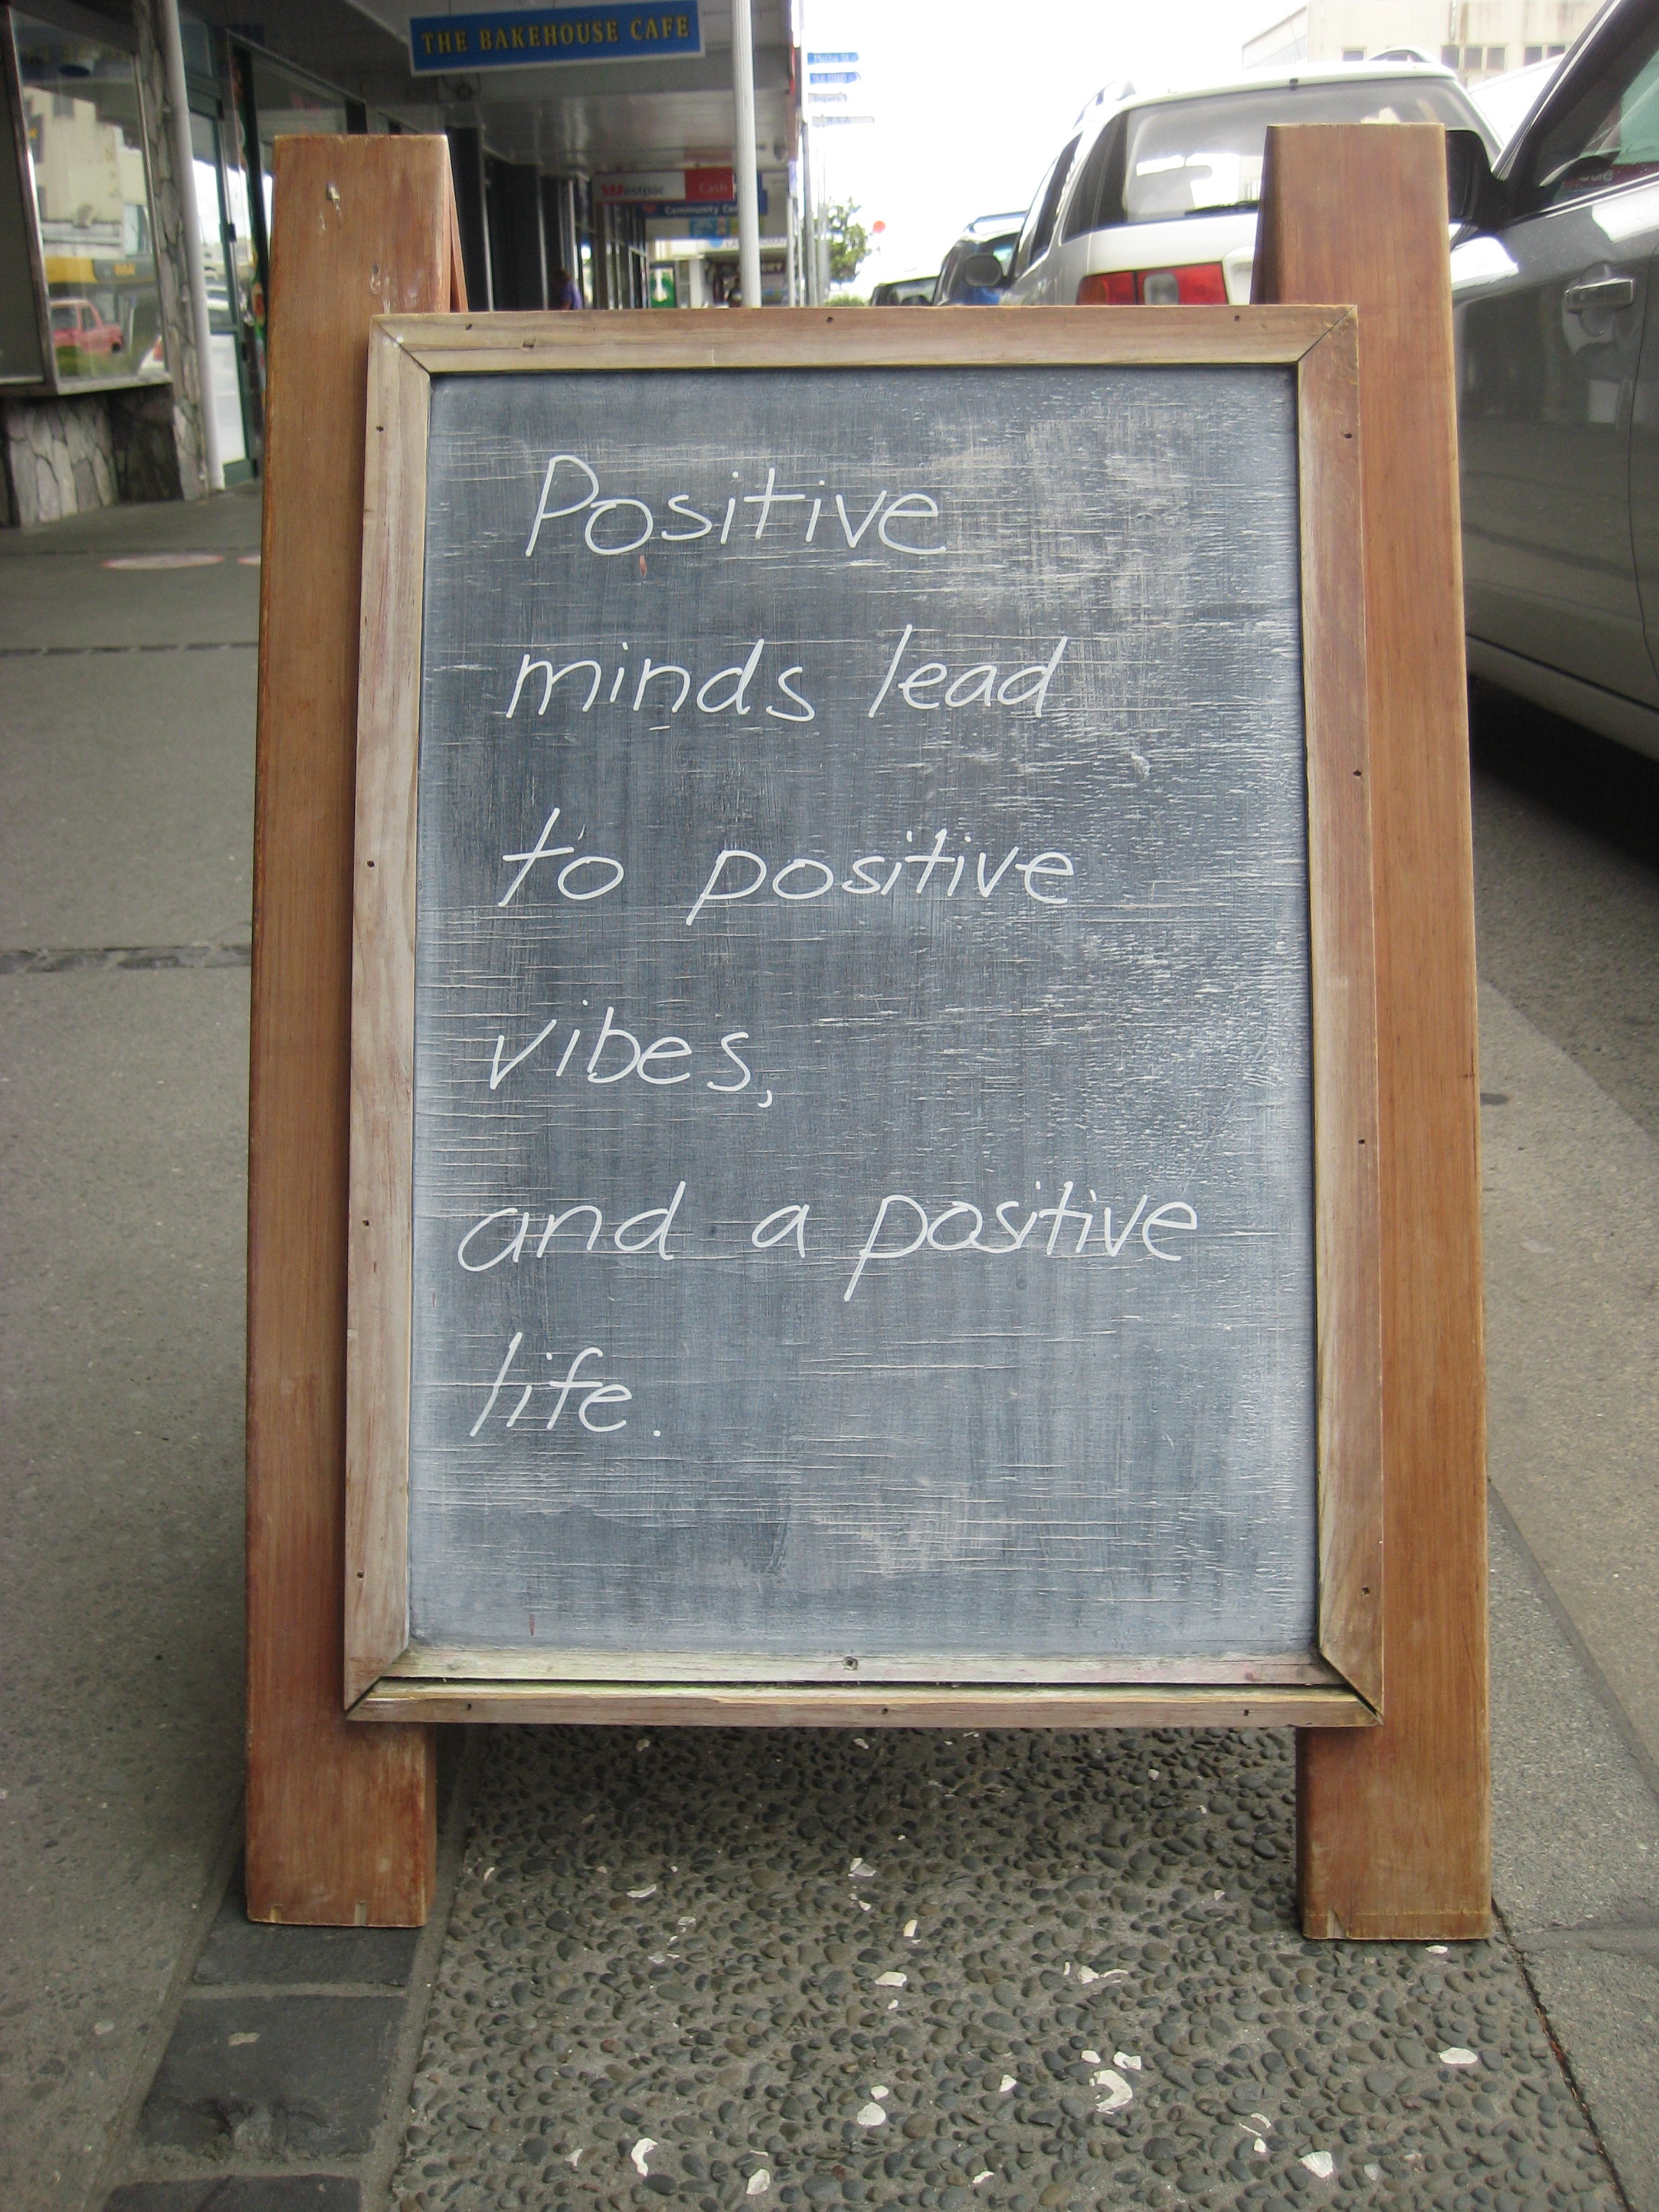 THE BAKEHOUSE CAFE
Westpac Cash
Community
Positive
minds lead
to positive
vibes,
and a positive
life.